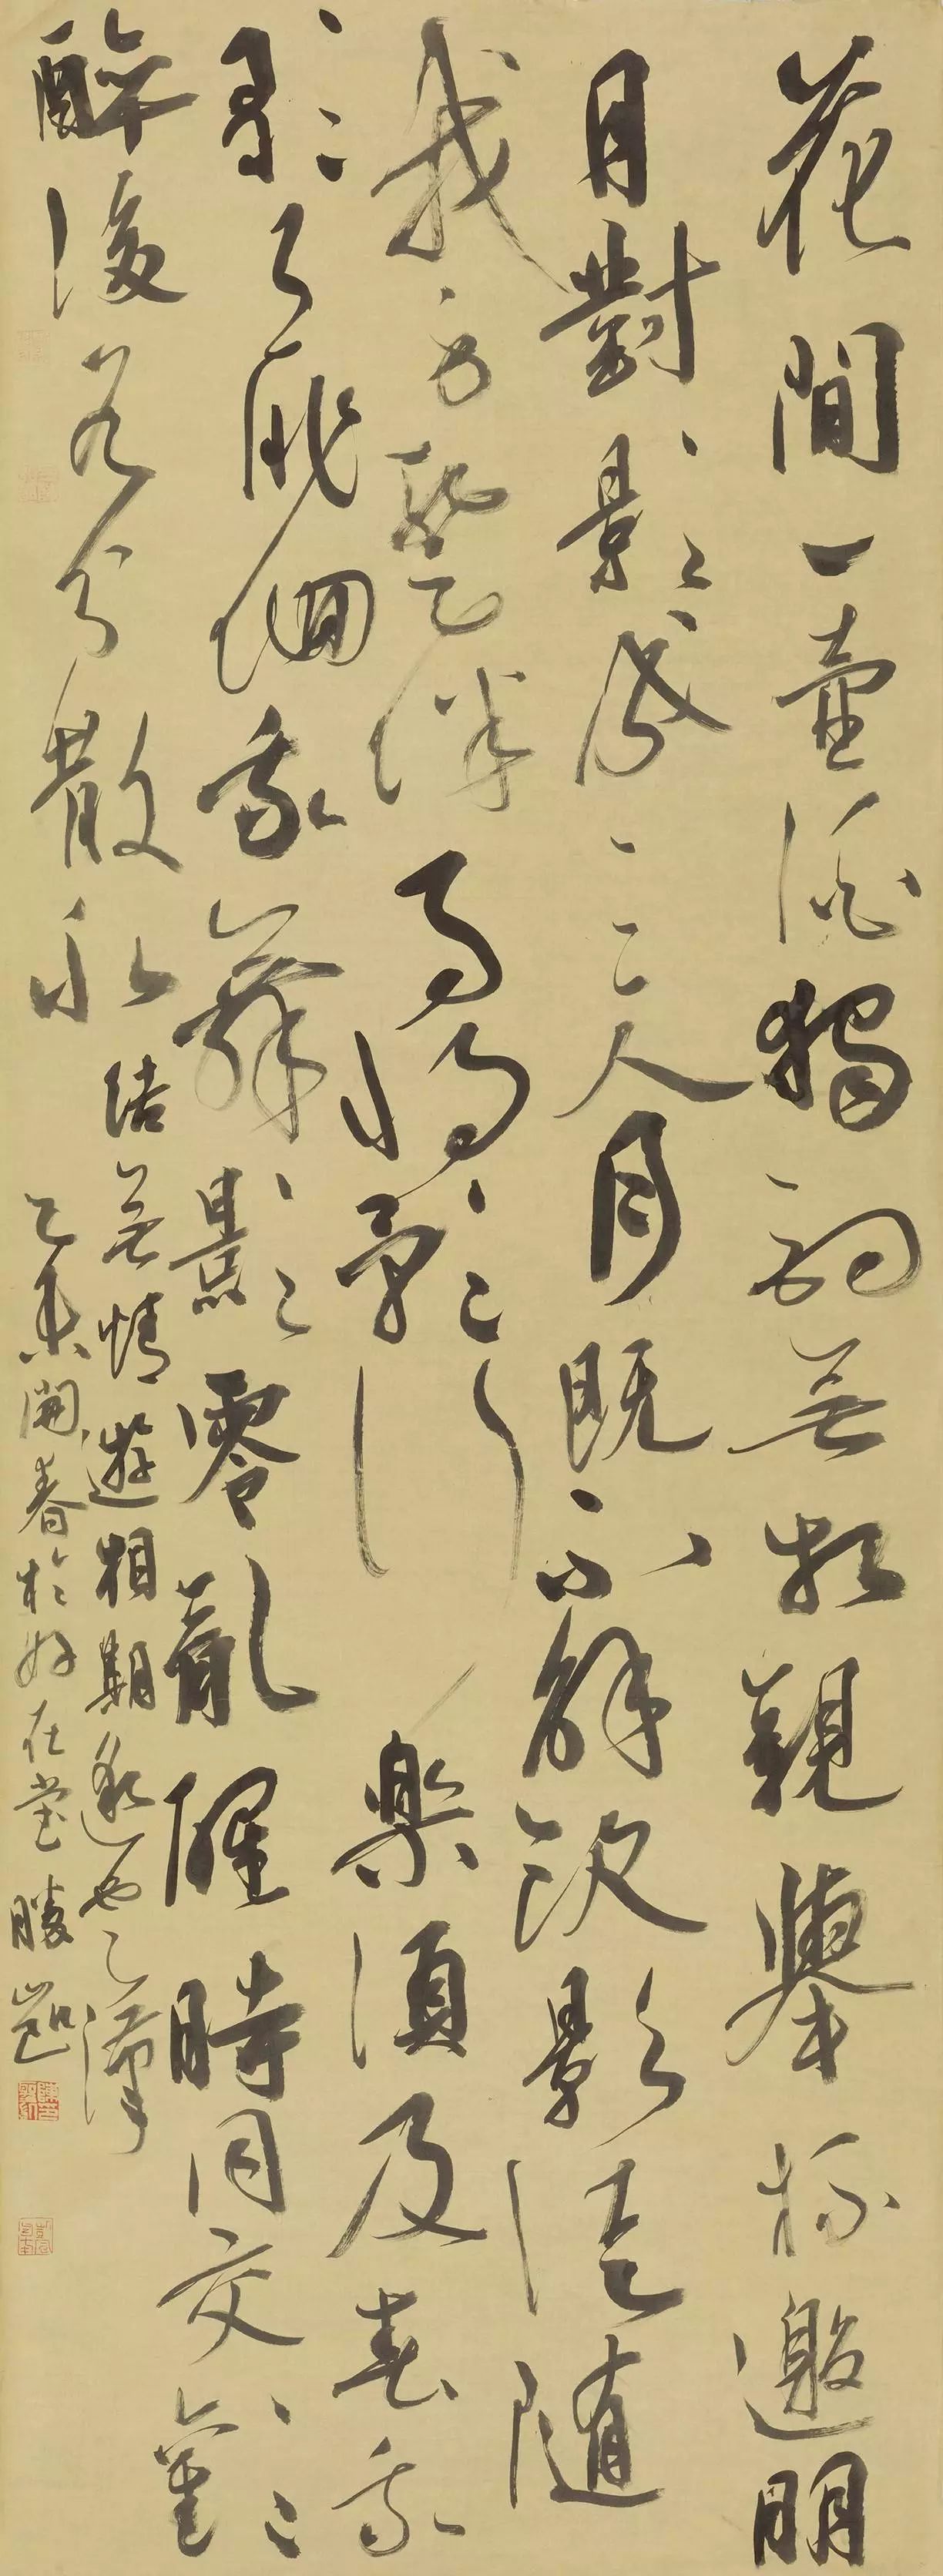 花間一壺酒獨酌無相親舉杯邀明
月對影成三人月既不解飲影徒隨
我身暫伴月將影行樂須及春我
歌月徘徊我舞影零亂醒時同交歡
醉後各分散永
結無情遊相期邈雲漢
乙未開春於好在堂勝凱